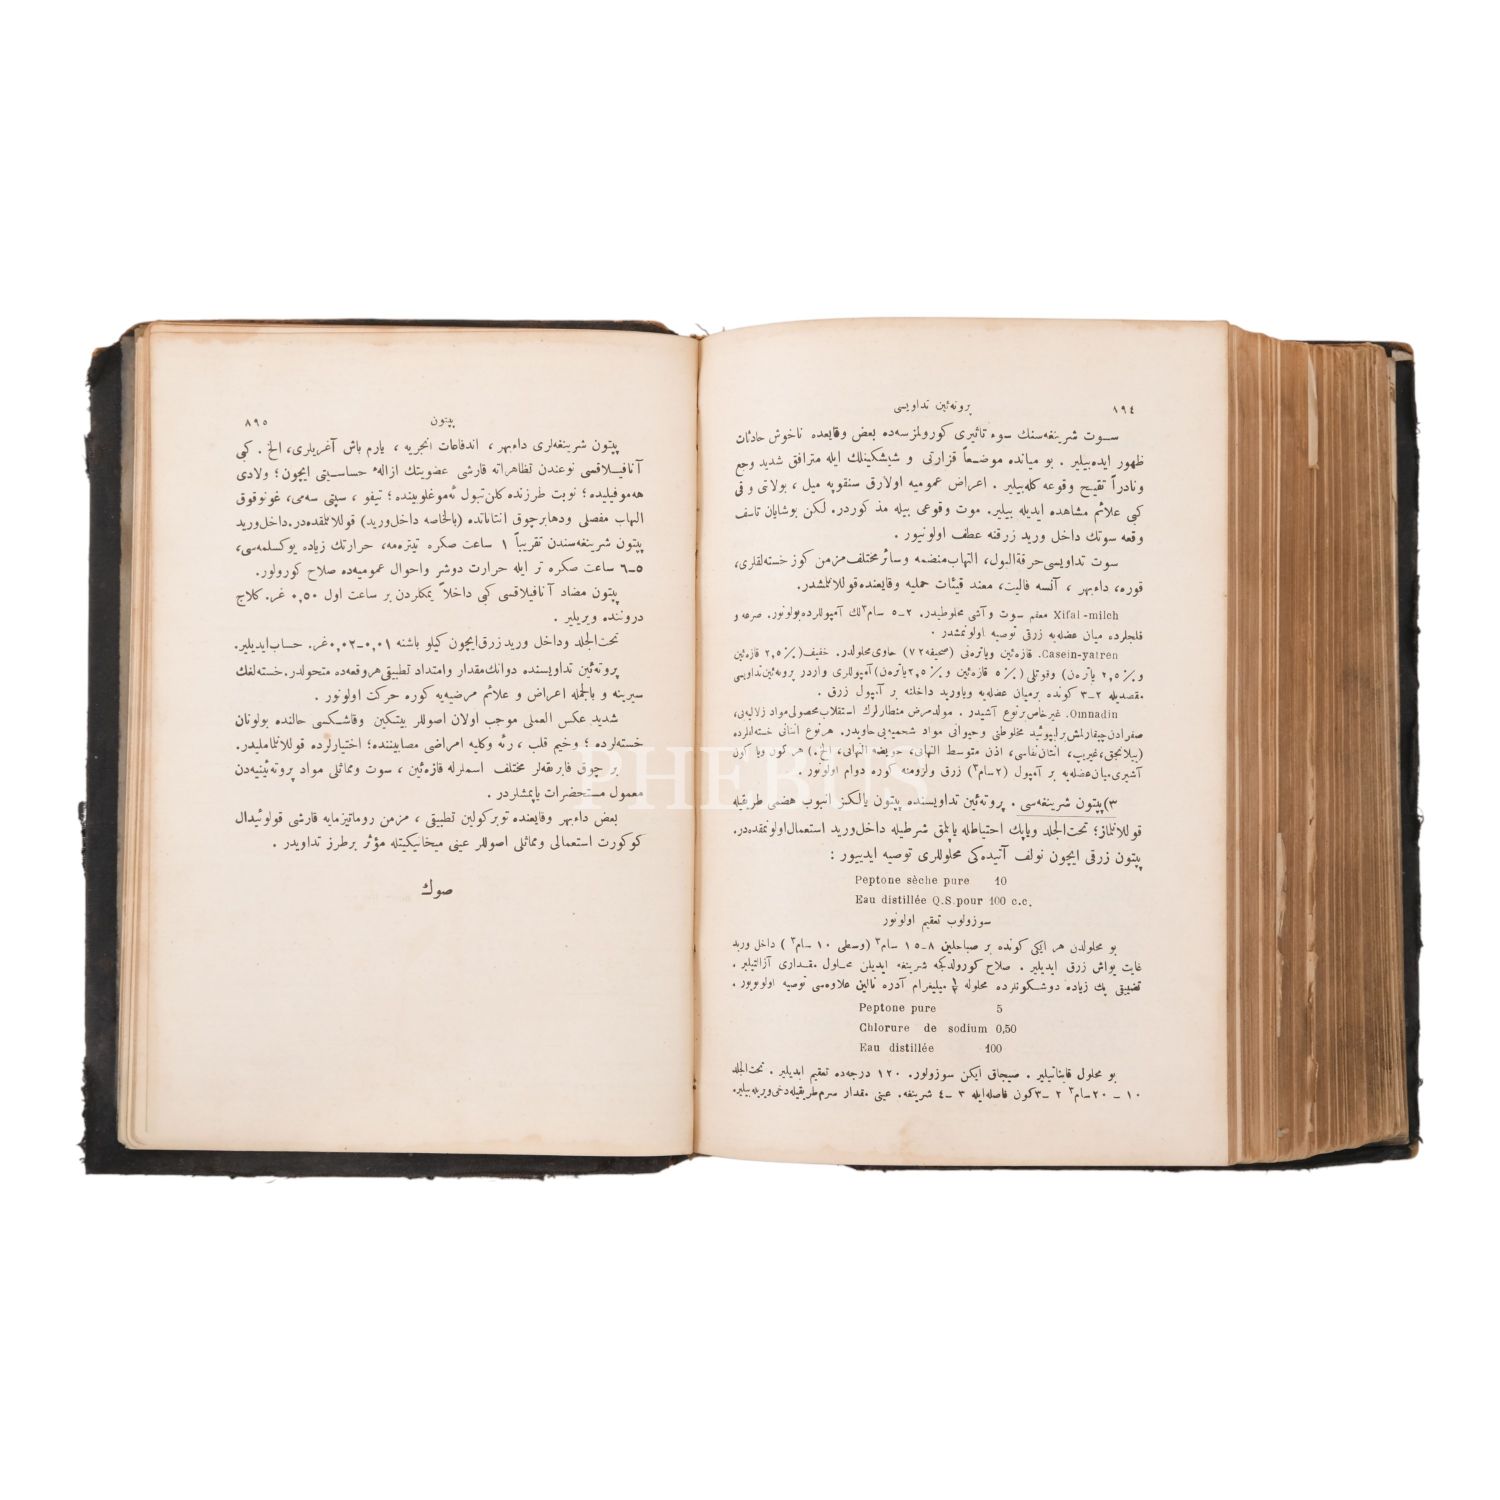 ٨٩٤
پروته‌ئین تداویسی
سوت شرینغه‌سنك سوء تأثیری كورولمزسه‌ده بعض وقایعده ناخوش حادثات
ظهور ایده‌بیلیر. بو میانده موضعاً قزارتی و شیشكینلك ایله مترافق شدید وجع
ونادراً تقیح وقوعه كله‌بیلیر. اعراض عمومیه اولارق سنقوپه میل، بولانتی وقی
كبی علائم مشاهده ایدیله بیلیر. موت وقوعی بیله مذكوردر. لكن بوشایان تأسف
وقعه سوتك داخل ورید زرقنه عطف اولونیور.
سوت تداویسی حرقةالبول، التهاب منضمه وسائر مختلف مزمن كوز خسته‌لقلری،
قوره، داءبهر، آنسه فالیت، معند قیئات حملیه وقایعنده قوللانلمشدر.
Xifal-milch معقم سوت و آشی مخلوطیدر. ٢-٥ سام٣لك آمپوللرده بولونور. صرعه و
فلجلرده میان عضله‌یه زرقی توصیه اولونمشدر.
Casein-yatren. قازه‌ئین ویاتره‌نی (صحیفه ٧٢) حاوی محلولدر. خفیف (٪ ٢,٥ قازه‌ئین
و٪ ٢,٥ یاتره‌ن) وقوتلی (٪ ٥ قازه‌ئین و٪ ٢,٥ یاتره‌ن) آمپوللری واردر پروته‌ئین تداویسی
مقصدیله ٢-٣ كونده برمیان عضله‌یه ویاورید داخلنه بر آمپول زرق.
Omnadin. غیرخاص برنوع آشیدر. مولدمرض منطارلرك استقلاب محصولی مواد زلالیه‌یی،
صفرادن چیقارلمش برلیپوئید مخلوطنی وحیوانی مواد شحمیه‌یی حاویدر. هرنوع انتانی خسته‌لقلرده
(ییلانجق، غریب، انتان نفاسی، اذن متوسط التهابی، حویضه التهابی، الخ.) هركون ویا كون
آشیری میان عضله‌یه بر آمپول (٢ سام٣) زرق ولزومنه كوره دوام اولونور.
٣) پپتون شرینغه‌سی. پروته‌ئین تداویسنده پپتون یالكز انبوب هضمی طریقیله
قوللانلماز؛ تحت‌الجلد ویاپك احتیاطله یاپلمق شرطیله داخل ورید استعمال اولونمقده‌در.
پپتون زرقی ایچون نولف آتیده‌كی محلوللری توصیه ایدییور:
Peptone sèche pure 10
Eau distillée Q.S.pour 100 c.c.
سوزولوب تعقیم اولونور
بو محلولدن هر ایكی كونده بر صباحلین ٨-١٥ سام٣ (وسطی ١٠ سام٣) داخل ورید
غایت یواش زرق ایدیلیر. صلاح كورولدكجه شرینغه ایدیلن محلول مقداری آزالتیلیر.
تضییقی پك زیاده دوشكونلرده محلوله میلیغرام آدره نالین علاوه‌سی توصیه اولونویور.
Peptone pure 5
Chlorure de sodium 0,50
Eau distillée 100
بو محلول قایناتیلیر. صیجاق ایكن سوزولور. ١٢٠ درجه‌ده تعقیم ایدیلیر. تحت‌الجلد
١٠ – ٢٠ سام٣ ٢ – ٣ كون فاصله‌ایله ٣ – ٤ شرینغه. عینی مقدار سرم طریقیله دخی ویریله‌بیلیر.
پپتون
٨٩٥
پپتون شرینغه‌لری داءبهر، اندفاعات انجریه، یارم باش آغریلری، الخ. كبی
آنافیلاقسی نوعندن تظاهراته قارشی عضویتك ازالهٔ حساسیتی ایچون؛ ولادی
هه‌موفیلیده؛ نوبت طرزنده كلن تبول ئه‌موغلوبینده؛ تیفو، سپتی سه‌می، غونوقوق
التهاب مفصلی ودهابرچوق انتاناتده (بالخاصه داخل‌ورید) قوللانلمقده‌در. داخل‌ورید
پپتون شرینغه‌سندن تقریباً ١ ساعت صكره تیتره‌مه، حرارتك زیاده یوكسلمه‌سی،
٥-٦ ساعت صكره تر ایله حرارت دوشر واحوال عمومیه‌ده صلاح كورولور.
پپتون مضاد آنافیلاقسی كبی داخلاً یمكلردن بر ساعت اول ٠,٥٠ غر. كلاج
دروننده ویریلیر.
تحت‌الجلد وداخل ورید زرق ایچون كیلو باشنه ٠,٠١-٠,٠٢ غر. حساب ایدیلیر.
پروته‌ئین تداویسنده دوانك مقدار وامتداد تطبیقی هروقعه‌ده متحولدر. خسته‌لغك
سیرینه و بالجمله اعراض و علائم مرضیه‌یه كوره حركت اولونور.
شدید عكس العملی موجب اولان اصوللر بیتكین وقاشكسی حالنده بولونان
خسته‌لرده؛ وخیم قلب، رئه وكلیه امراضی مصابیننده؛ اختیارلرده قوللانلماملیدر.
بر چوق فابریقه‌لر مختلف اسملرله قازه‌ئین، سوت ومماثلی مواد پروته‌ئینیه‌دن
معمول مستحضرات یاپمشلردر.
بعض داءبهر وقایعنده توبركولین تطبیقی، مزمن روماتیزمایه قارشی قولوئیدال
كوكورت استعمالی ومماثلی اصوللر عینی میخانیكیتله مؤثر برطرز تداویدر.
صوك
PHEBUS